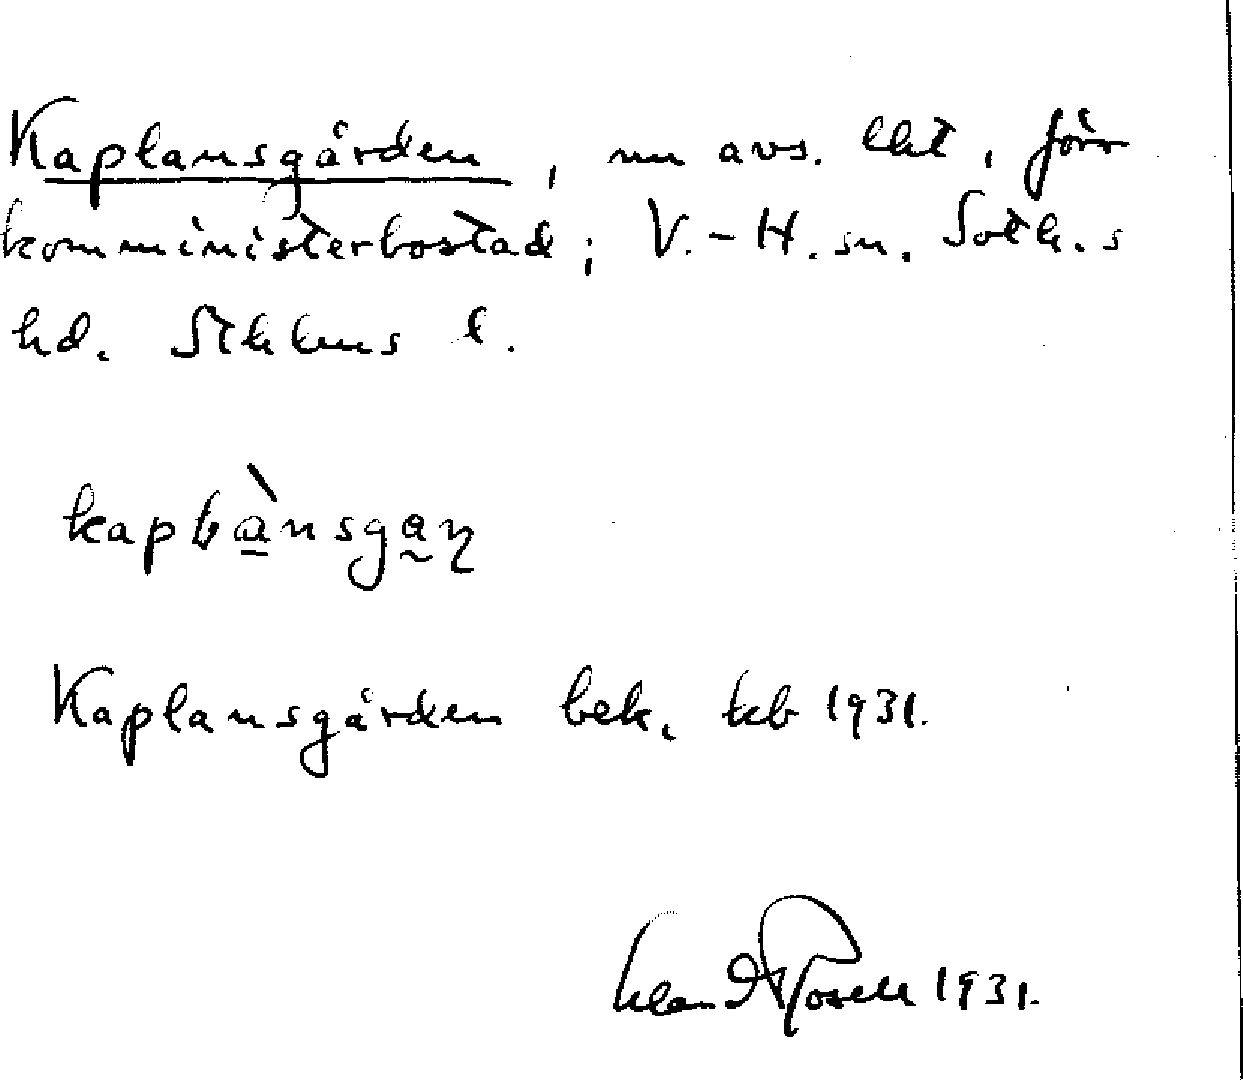 Kaplansgården, nu avs. lht, förr
komministerbostad; V.-H. sn. Soth.s
hd. Sthlms l.
kapɫànsgaɳ
Kaplansgården bek. kb 1931.
1931.